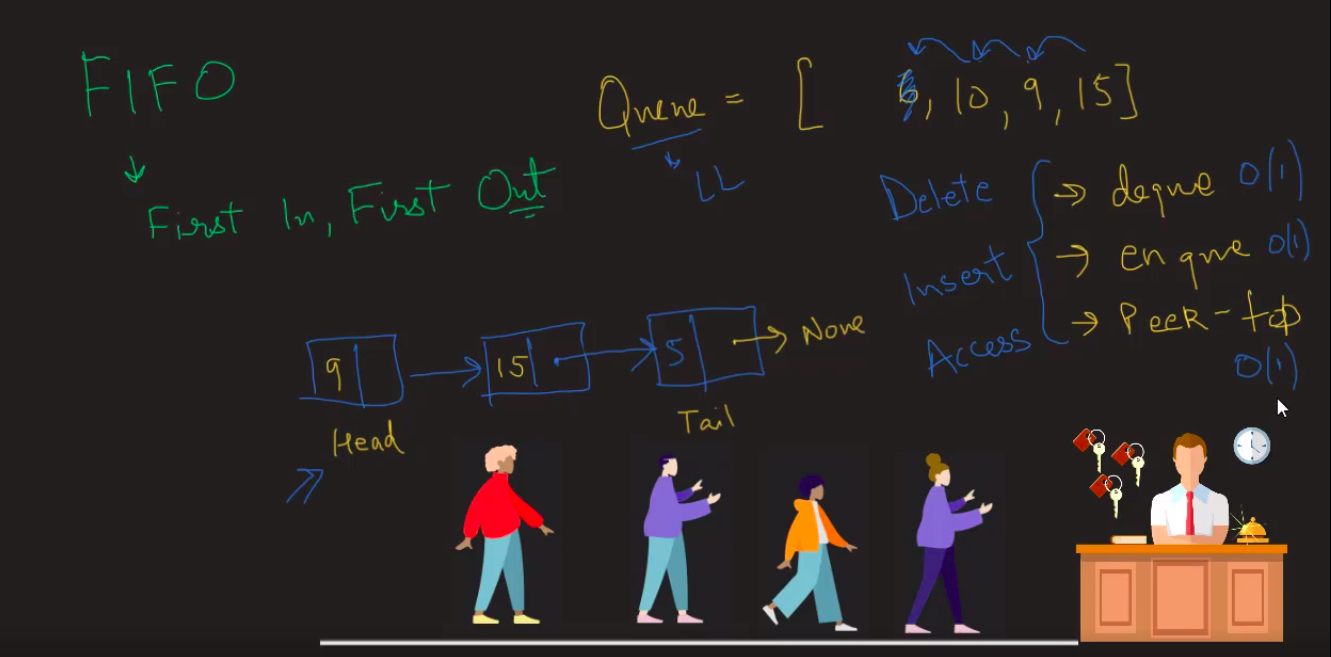 FIFO
First In, First Out
Queue = [ 5, 10, 9, 15]
LL
Delete → deque O(1)
Insert → en que O(1)
Access → Peek-top
O(1)
9 15 5 → None
Head Tail